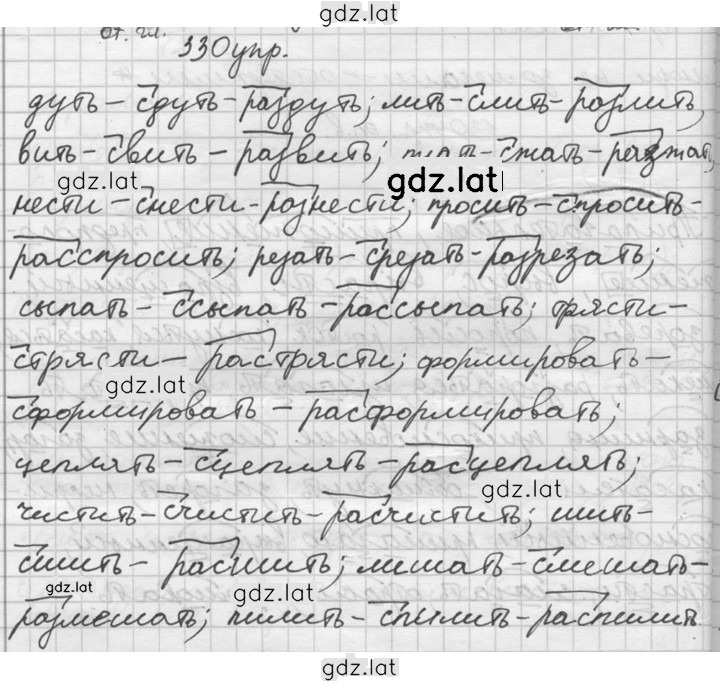 gdz.lat
330упр.
дуть – сдуть – раздуть; лить – слить – разлить,
вить – свить – развить; – сжать – разжать,
gdz.lat gdz.lat
нести – снести – разнести; просить – спросить –
расспросить; резать – срезать – разрезать;
сыпать – ссыпать – рассыпать; трясти –
стрясти – растрясти; формировать –
gdz.lat
сформировать – расформировать;
цеплять – сцеплять – расцеплять;
gdz.lat
чистить – счистить – расчистить; шить –
сшить – расшить; мешать – смешать –
gdz.lat gdz.lat
размешать; пилить – спилить – распилить
gdz.lat